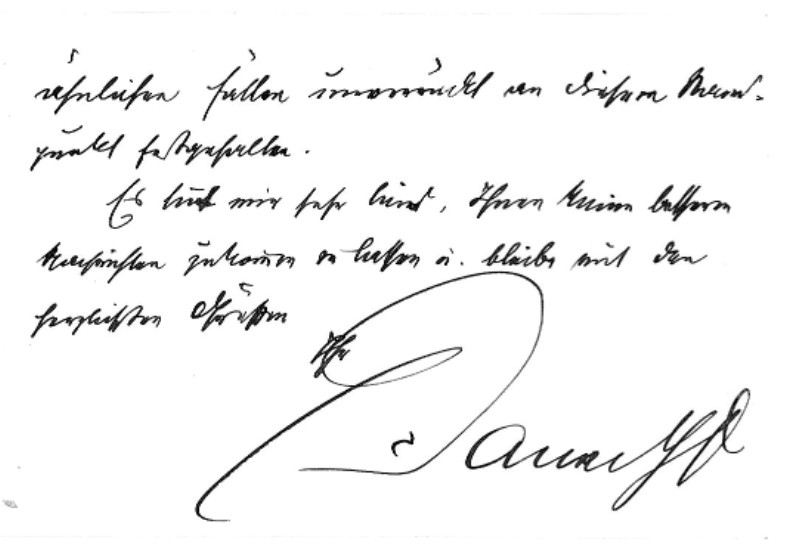 ähnlichen Fällen unverrückt an diesem Stand-
punkt festgehalten.
Es tut mir sehr leid, Ihnen keine besseren
Nachrichten zukommen zu lassen u. bleibe mit den
herzlichsten Grüßen
Ihr